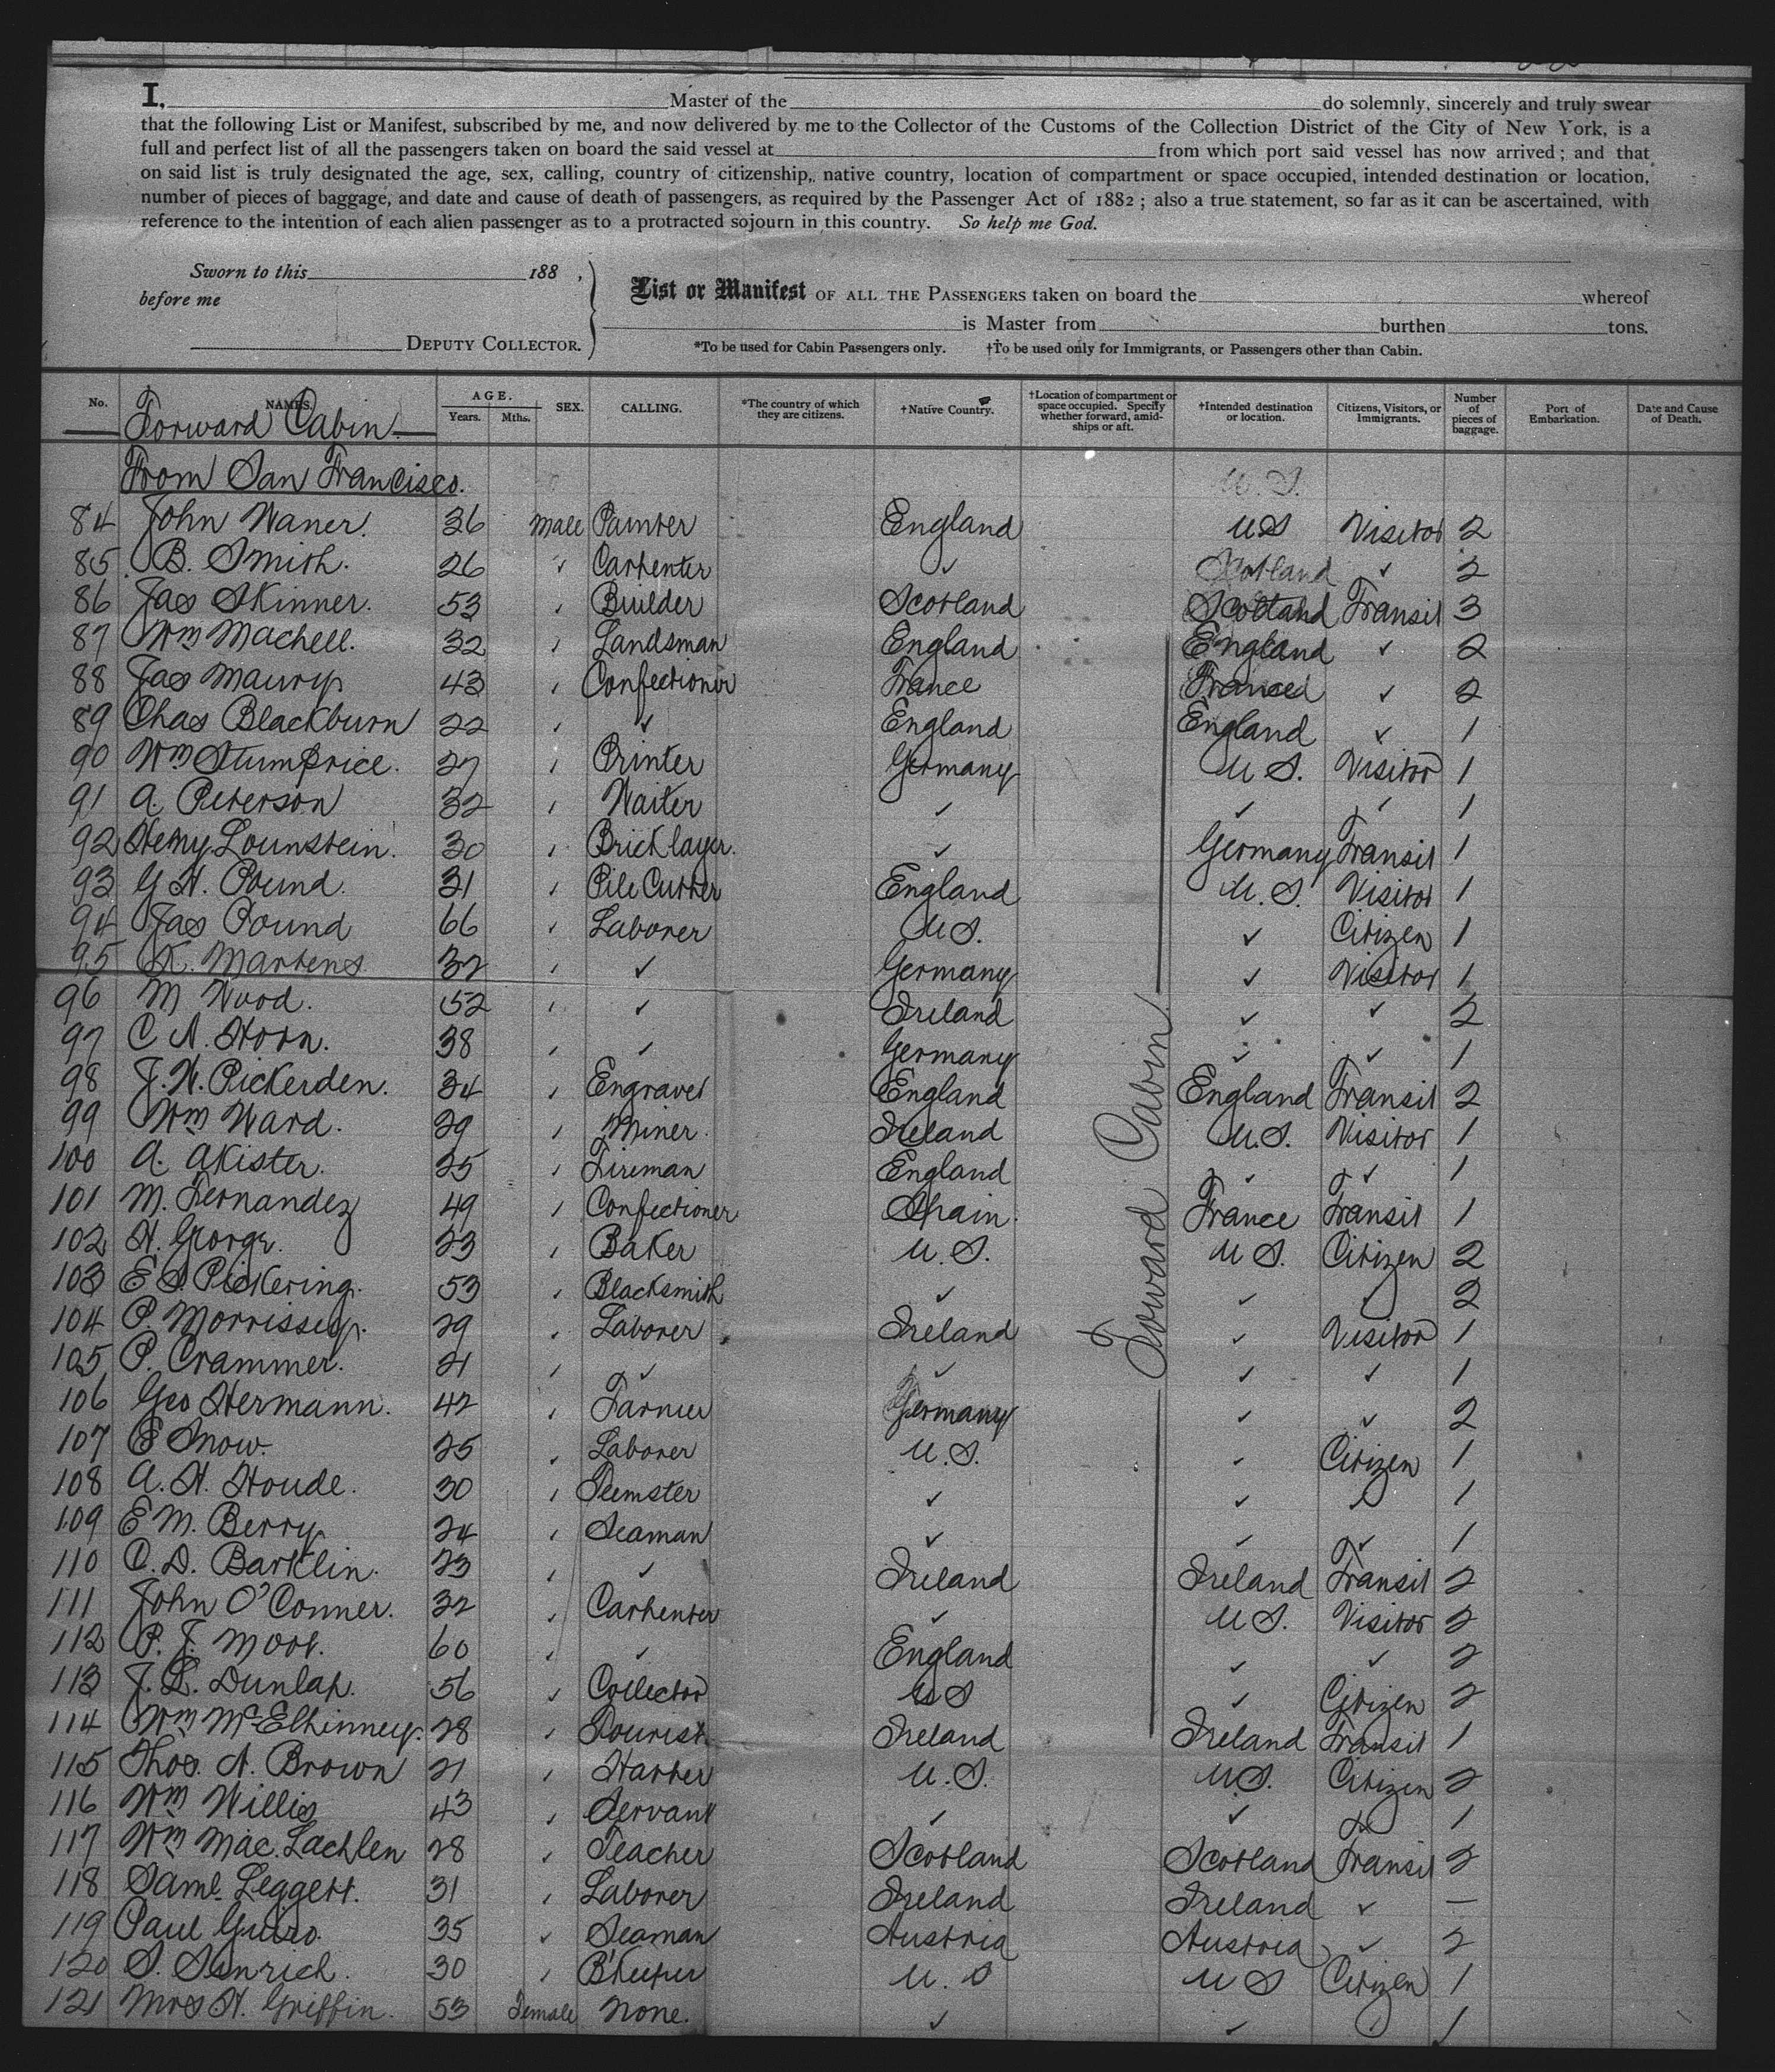 I, Master of the do solemnly, sincerely and truly swear
that the following List or Manifest, subscribed by me, and now delivered by me to the Collector of the Customs of the Collection District of the City of New York, is a
full and perfect list of all the passengers taken on board the said vessel at from which port said vessel has now arrived; and that
on said list is truly designated the age, sex, calling, country of citizenship, native country, location of compartment or space occupied, intended destination or location,
number of pieces of baggage, and date and cause of death of passengers, as required by the Passenger Act of 1882; also a true statement, so far as it can be ascertained, with
reference to the intention of each alien passenger as to a protracted sojourn in this country. So help me God.
Sworn to this 188 ,
before me
DEPUTY COLLECTOR.
List or Manifest OF ALL THE PASSENGERS taken on board the whereof
is Master from burthen tons.
*To be used for Cabin Passengers only. †To be used only for Immigrants, or Passengers other than Cabin.
No. NAMES. AGE. Years. Mths. SEX. CALLING. *The country of which they are citizens. †Native Country. †Location of compartment or space occupied. Specify whether forward, amidships or aft. †Intended destination or location. Citizens, Visitors, or Immigrants. Number of pieces of baggage. Port of Embarkation. Date and Cause of Death.
Forward Cabin
From San Francisco. U.S.
84 John Waner. 36 Male Painter England US Visitor 2
85 B. Smith. 26 ✓ Carpenter ✓ Scotland ✓ 2
86 Jas Skinner. 53 Builder Scotland Scotland Transit 3
87 Wm Machell. 32 Landsman England England ✓ 2
88 Jas Maury 43 Confectioner France France ✓ 2
89 Chas Blackburn 22 ✓ England England ✓ 1
90 Wm Stumprice. 27 Printer Germany U S. Visitor 1
91 A. Peterson 32 Waiter ✓ ✓ ✓ 1
92 Henry Lounstein. 30 Bricklayer. ✓ Germany Transit 1
93 G H. Pound. 31 Pile Cutter England U.S. Visitor 1
94 Jas Pound 66 Laborer U S. ✓ Citizen 1
95 K. Martens 32 ✓ Germany ✓ Visitor 1
96 M Wood. 52 ✓ Ireland ✓ ✓ 2
97 C N. Horn. 38 ✓ Germany ✓ ✓ 1
98 J. W. Pickerden. 34 Engraver England England Transit 2
99 Wm Ward. 29 Miner. Ireland U.S. Visitor 1
100 A. Akister. 25 Fireman England ✓ ✓ 1
101 M. Fernandez 49 Confectioner Spain. France Transit 1
102 H. George. 23 Baker U.S. U S. Citizen 2
103 E S. Pickering. 53 Blacksmith ✓ ✓ ✓ 2
104 P. Morrissey. 29 Laborer Ireland ✓ Visitor 1
105 P. Crammer. 21 ✓ ✓ ✓ ✓ 1
106 Geo Hermann. 42 Farmer Germany ✓ ✓ 2
107 E Snow. 25 Laborer U.S. ✓ Citizen 1
108 A. H. Houde. 30 Teemster ✓ ✓ ✓ 1
109 E M. Berry 24 Seaman ✓ ✓ ✓ 1
110 C. D. Barklin. 23 ✓ Ireland Ireland Transit 2
111 John O'Conner. 32 Carpenter ✓ U S. Visitor 2
112 P. J. Moor. 60 ✓ England ✓ ✓ 2
113 J. L. Dunlap. 56 Collector U S ✓ Citizen 2
114 Wm McElhinney. 28 Tourist. Ireland Ireland Transit 1
115 Thos. N. Brown 21 Harper U.S. U S. Citizen 2
116 Wm Willis 43 Servant ✓ ✓ ✓ 1
117 Wm Mac.Lachlen 28 Teacher Scotland Scotland Transit 2
118 Saml. Leggett. 31 Laborer Ireland Ireland ✓ —
119 Paul Guiro. 35 Seaman Austria Austria ✓ 2
120 S. 30 B'Keeper U. S U S Citizen 1
121 Mrs H. Griffin. 53 Female None. ✓ ✓ ✓ 1
Foward Cabin